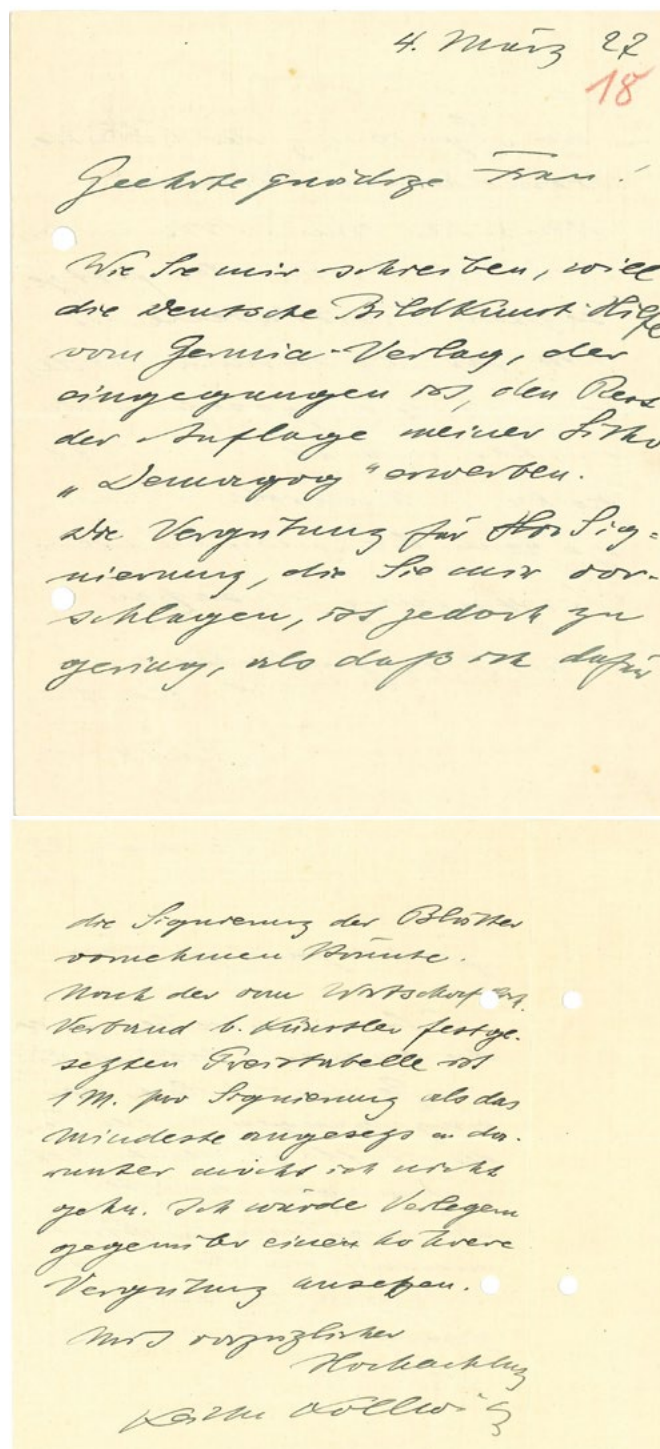 4. März 27
18
Geehrte gnädige Frau!
Wie Sie mir schreiben, will
die Deutsche Bildkunst-Hilfe
vom Germia-Verlag, der
eingegangen ist, den Rest
der Auflage meiner Litho
„Demagog“ erwerben.
Die Vergütung für Sig=
nierung, die Sie mir vor-
schlagen, ist jedoch zu
gering, als daß ich dafür
die Signierung der Blätter
vornehmen könnte.
Nach der vom Wirtschaftl.
Verband b. Künstler festge-
setzten Preistabelle ist
1 M. pro Signierung als das
Mindeste angesetzt u. da-
runter möcht ich nicht
gehn. Ich würde Verlegern
gegenüber eine höhere
Vergütung ansetzen.
Mit vorzüglicher
Hochachtung
Käthe Kollwitz